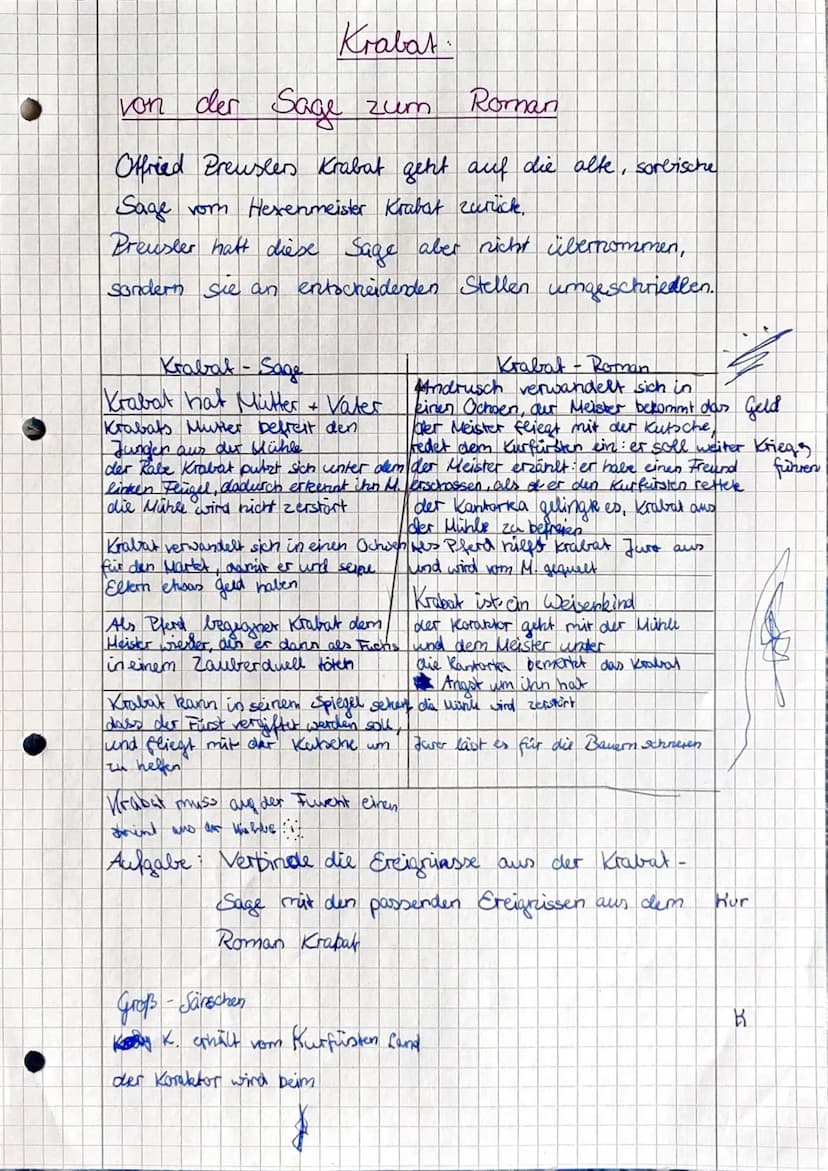 Krabat:
von der Sage zum Roman
Otfried Preuslers Krabat geht auf die alte, sorbische
Sage vom Hexenmeister Krabat zurück.
Preusler hatt diese Sage aber nicht übernommen,
sondern sie an entscheidenden Stellen umgeschrieben.
Krabat - Sage
Krabat hat Mutter + Vater
Krabats Mutter befreit den
Jungen aus der Mühle
der Rabe Krabat putzt sich unter dem
linken Flügel, dadurch erkennt ihn M.
die Mühle wird nicht zerstört
Krabat verwandelt sich in einen Ochsen
für den Markt, damit er und seine
Eltern etwas Geld haben
Als Pferd begegnet Krabat dem
Meister wieder, den er dann als Fuchs
in einem Zauberduell töten
Krabat kann in seinem Spiegel sehen
dass der Fürst vergiftet werden soll,
und fliegt mit der Kutsche um
zu helfen
Krabat muss auf der Flucht einen
Krabat - Roman
Andrusch verwandelt sich in
einen Ochsen, der Meister bekommt das Geld
der Meister fliegt mit der Kutsche,
redet dem Kurfürsten ein: er soll weiter Krieg
führen
der Meister erzählt: er habe einen Freund
erschossen, als er den Kurfürsten rettete
der Kantorka gelingt es, Krabat aus
der Mühle zu befreien
Als Pferd hilft Krabat Juro aus
und wird vom M. gequält
Krabat ist ein Weisenkind
der Koraktor geht mit der Mühle
und dem Meister unter
die Kantorka bemerkt das Krabat
Angst um ihn hat
die Mühle wird zerstört
Juro läst es für die Bauern schneien
Aufgabe: Verbinde die Ereignisse aus der Krabat-
Sage mit den passenden Ereignissen aus dem Kur
Roman Krabat
Groß - Särschen
K. erhält vom Kurfürsten Land
K
der Koraktor wird beim